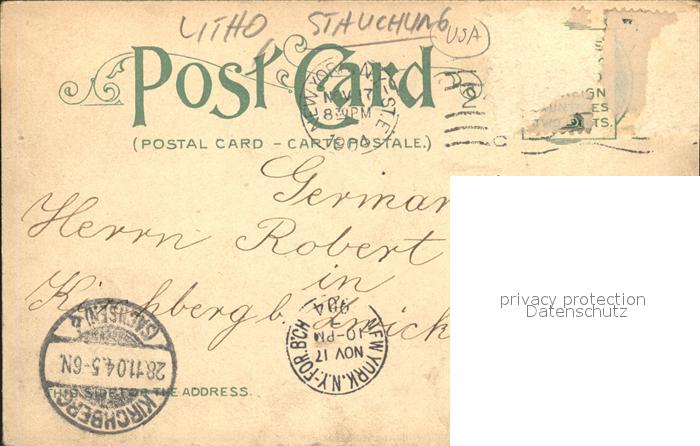 LITHO STAUCHUNG
USA
Post Card
NEW YORK, N.Y. STA. E
NOV 17
8 30 PM
1904
(POSTAL CARD – CARTE POSTALE.)
Herrn Robert
in
Kirchberg b.
KIRCHBERG (SACHSEN)
28.11.04.5-6N.
NEW YORK, N.Y.-FOR. BCH
NOV 17
10-PM
904
THIS SIDE FOR THE ADDRESS.
privacy protection
Datenschutz